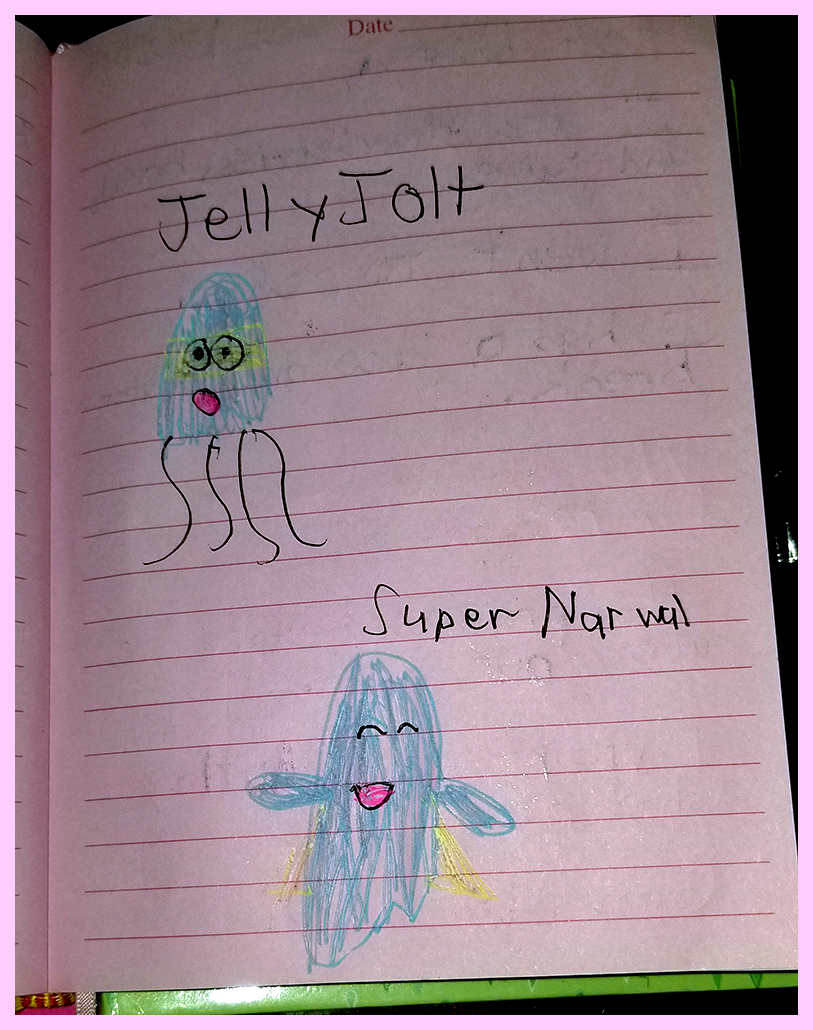 Date
Jelly Jolt
Super Narwal